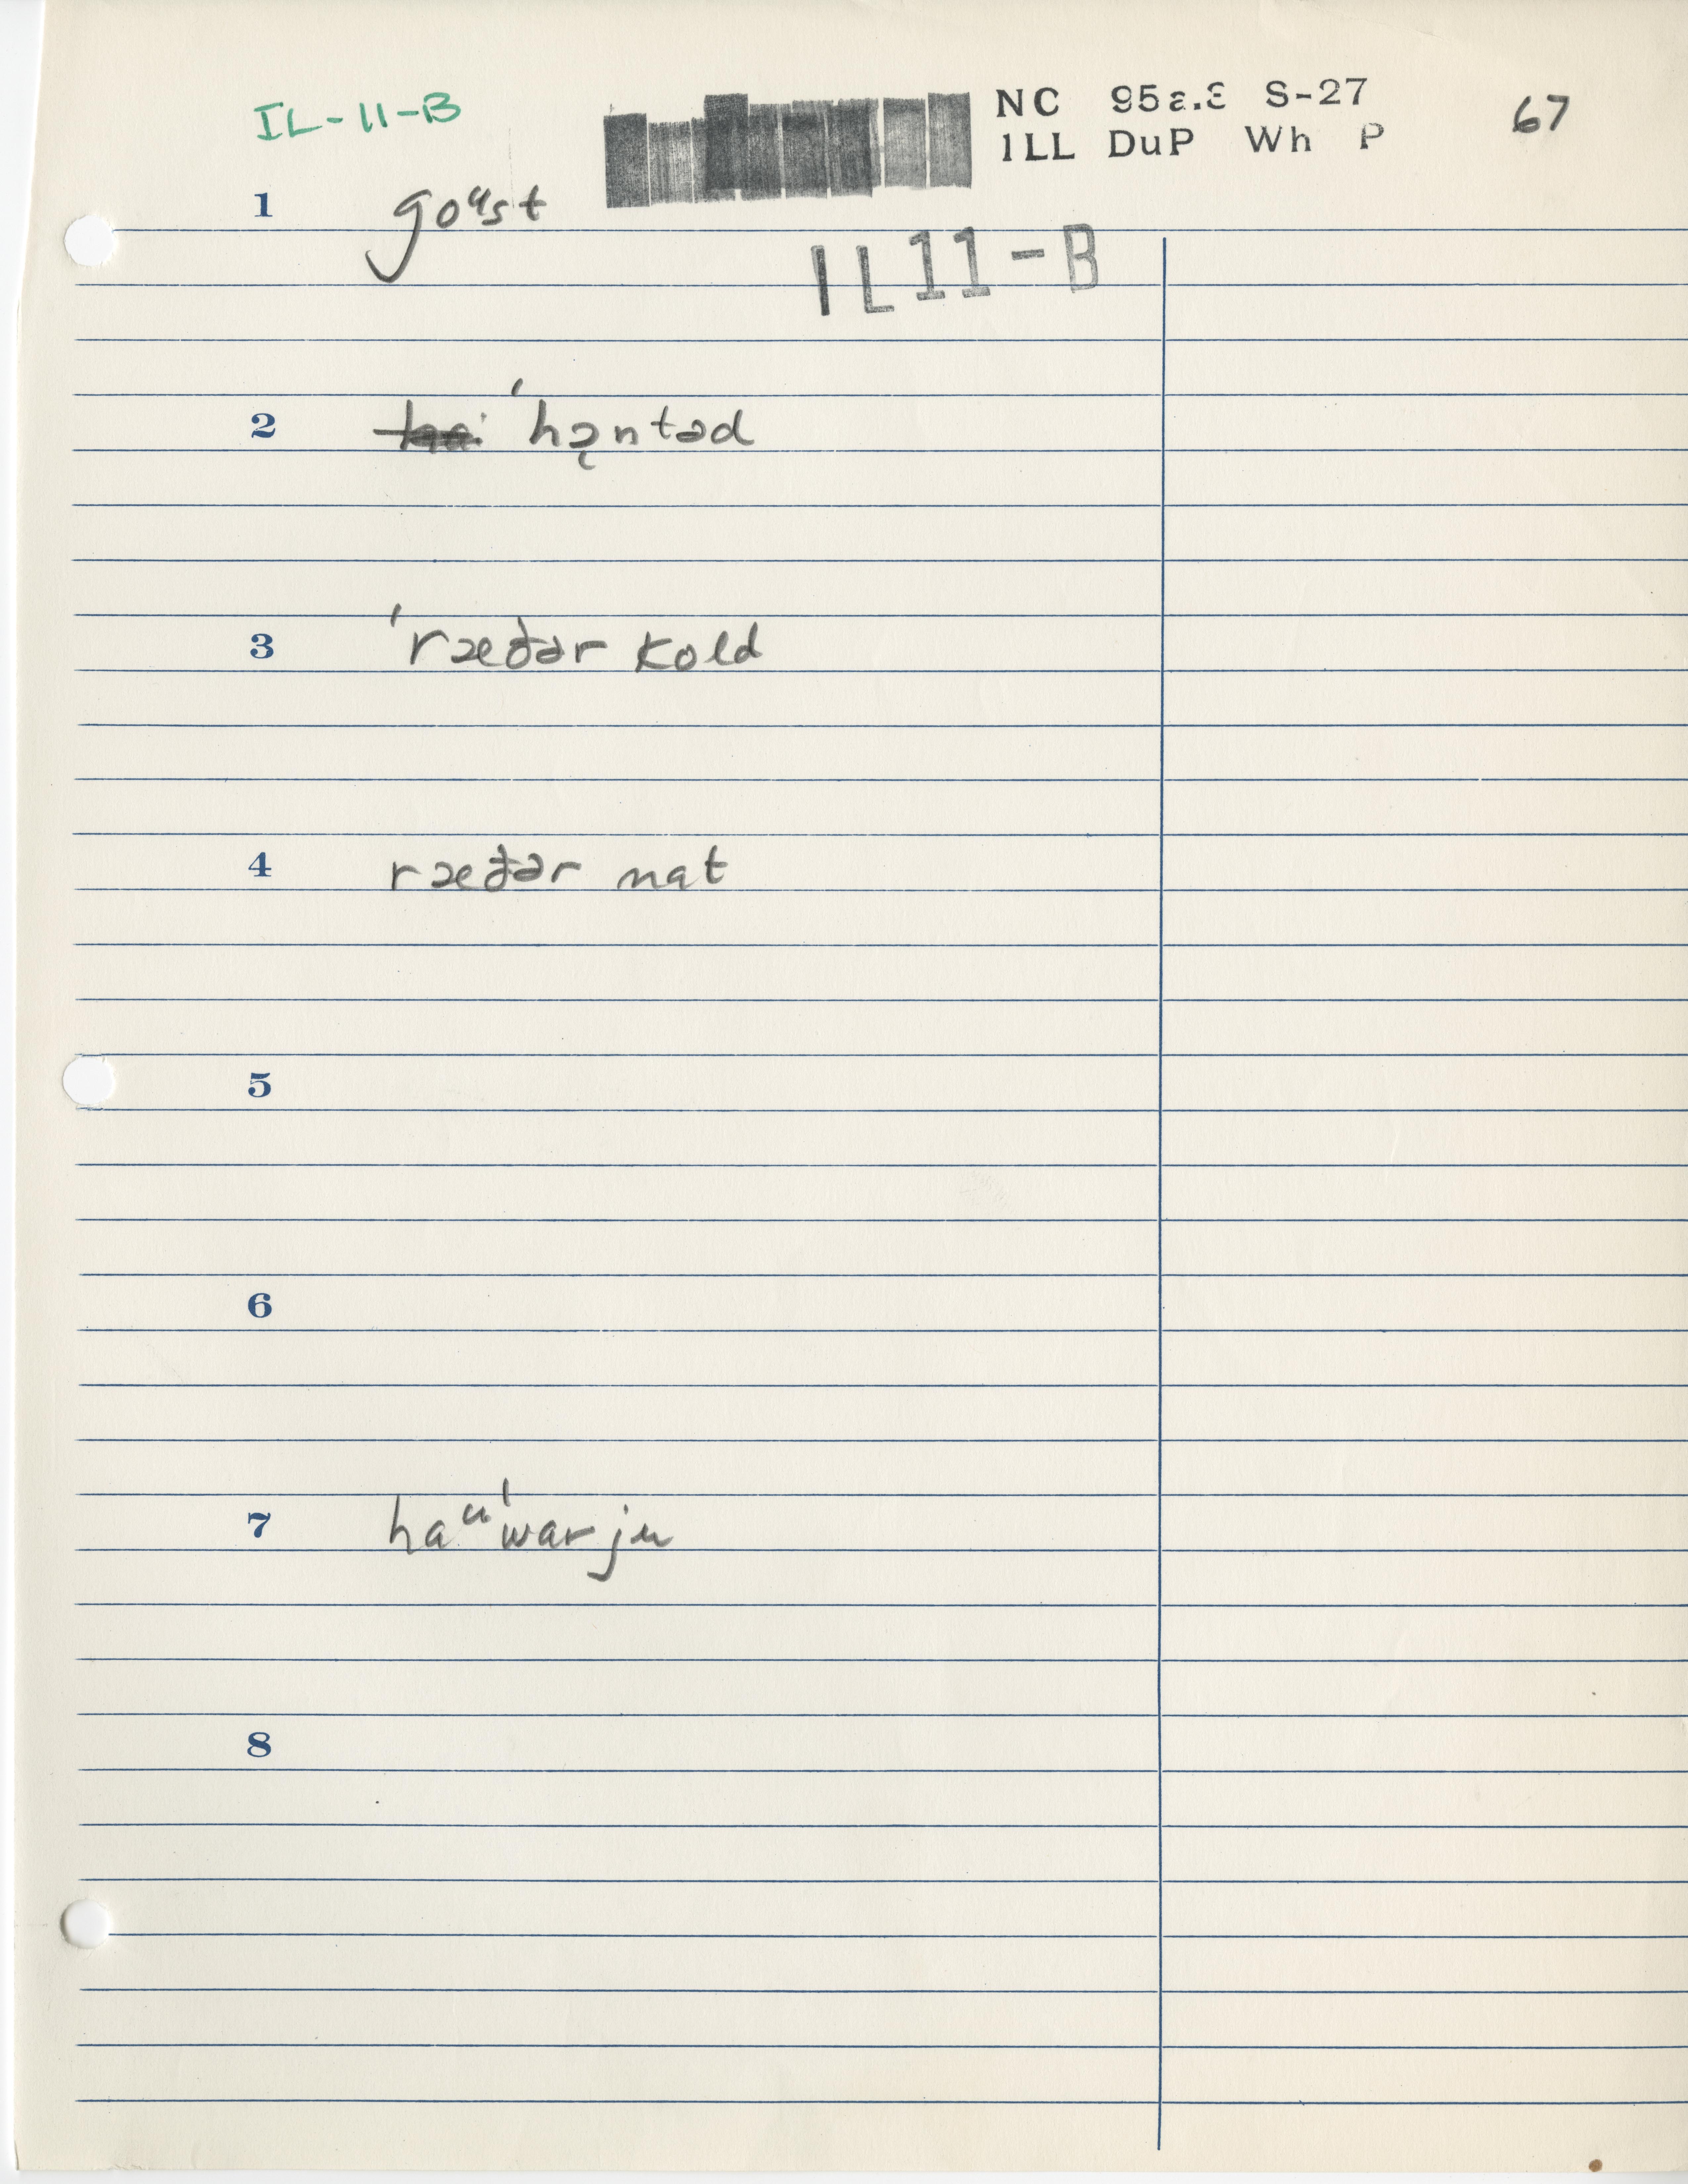 IL-11-B
NC 95a.3 S-27 67
1LL DuP Wh P
1 goᵘst
IL11-B
2 ˈhə̨ntəd
3 ˈræðər kold
4 ræðər nat
5
6
7 haᵘˈwar ju
8